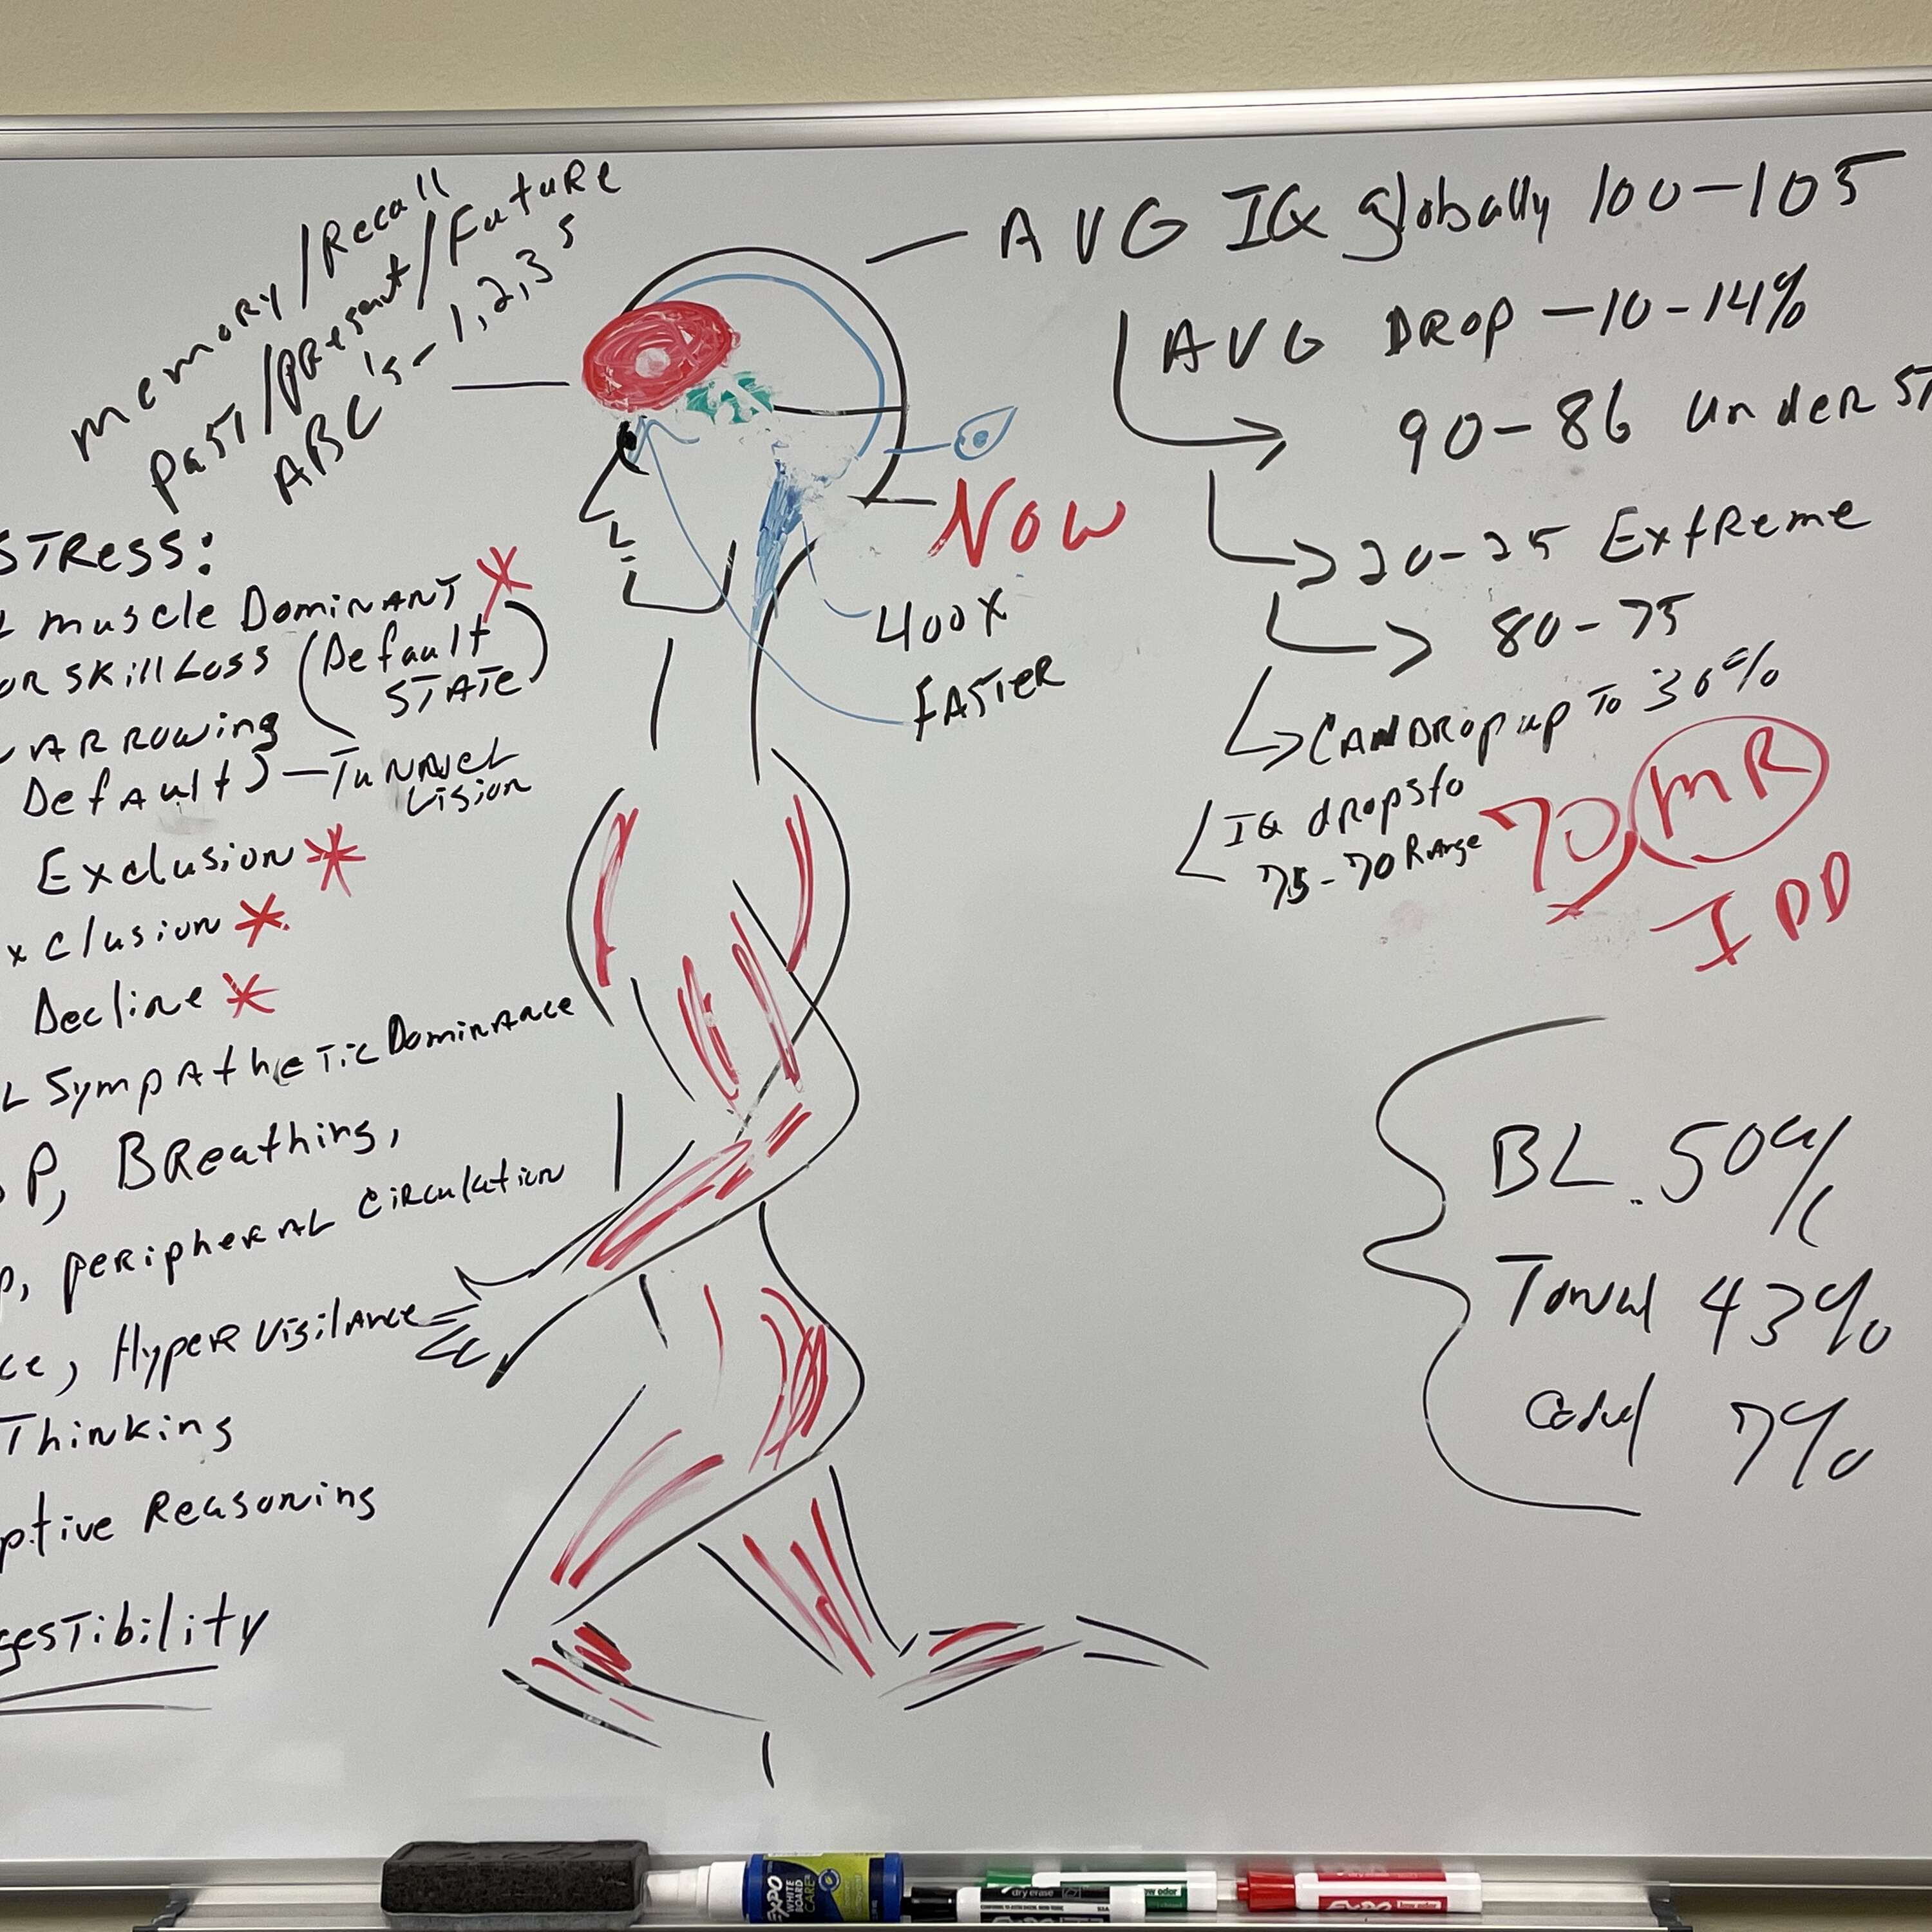 memory/Recall
past/present/Future
ABC's - 1,2,3's
STRess:
muscle Dominant
OR skill Loss (Default STATE)
ARROWing
Default) — Tunnel Vision
Exclusion
xclusion
Decline
L SympAtheTic Dominance
P, BReathing,
p, peripherAL CiRculation
ce, Hyper Vigilance
Thinking
ptive Reasoning
gesTibility
AVG IQ globally 100-105
AVG DROP -10-14%
90-86 under ST
20-25 ExtReme
80-75
CAN DROP up To 30%
IQ drops to
75-70 Range
70 MR
IDD
NOW
400X
FASTER
BL. 50%
Tonal 43%
7%
EXPO
WHITE BOARD
CARE
dry erase
low odor
EXPO
low odor